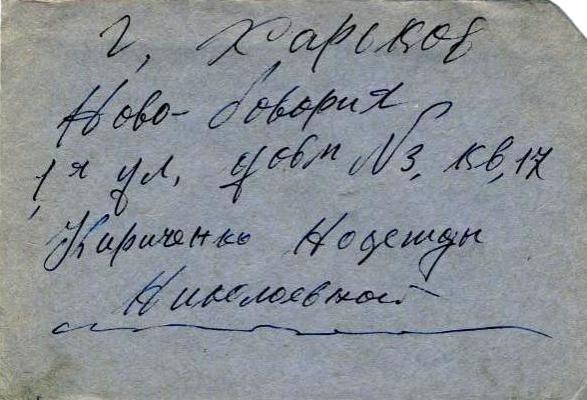 г, Харьков
Ново-Бовария
1я ул, дом №3, кв, 17
Кириченко Надежды
Николаевной